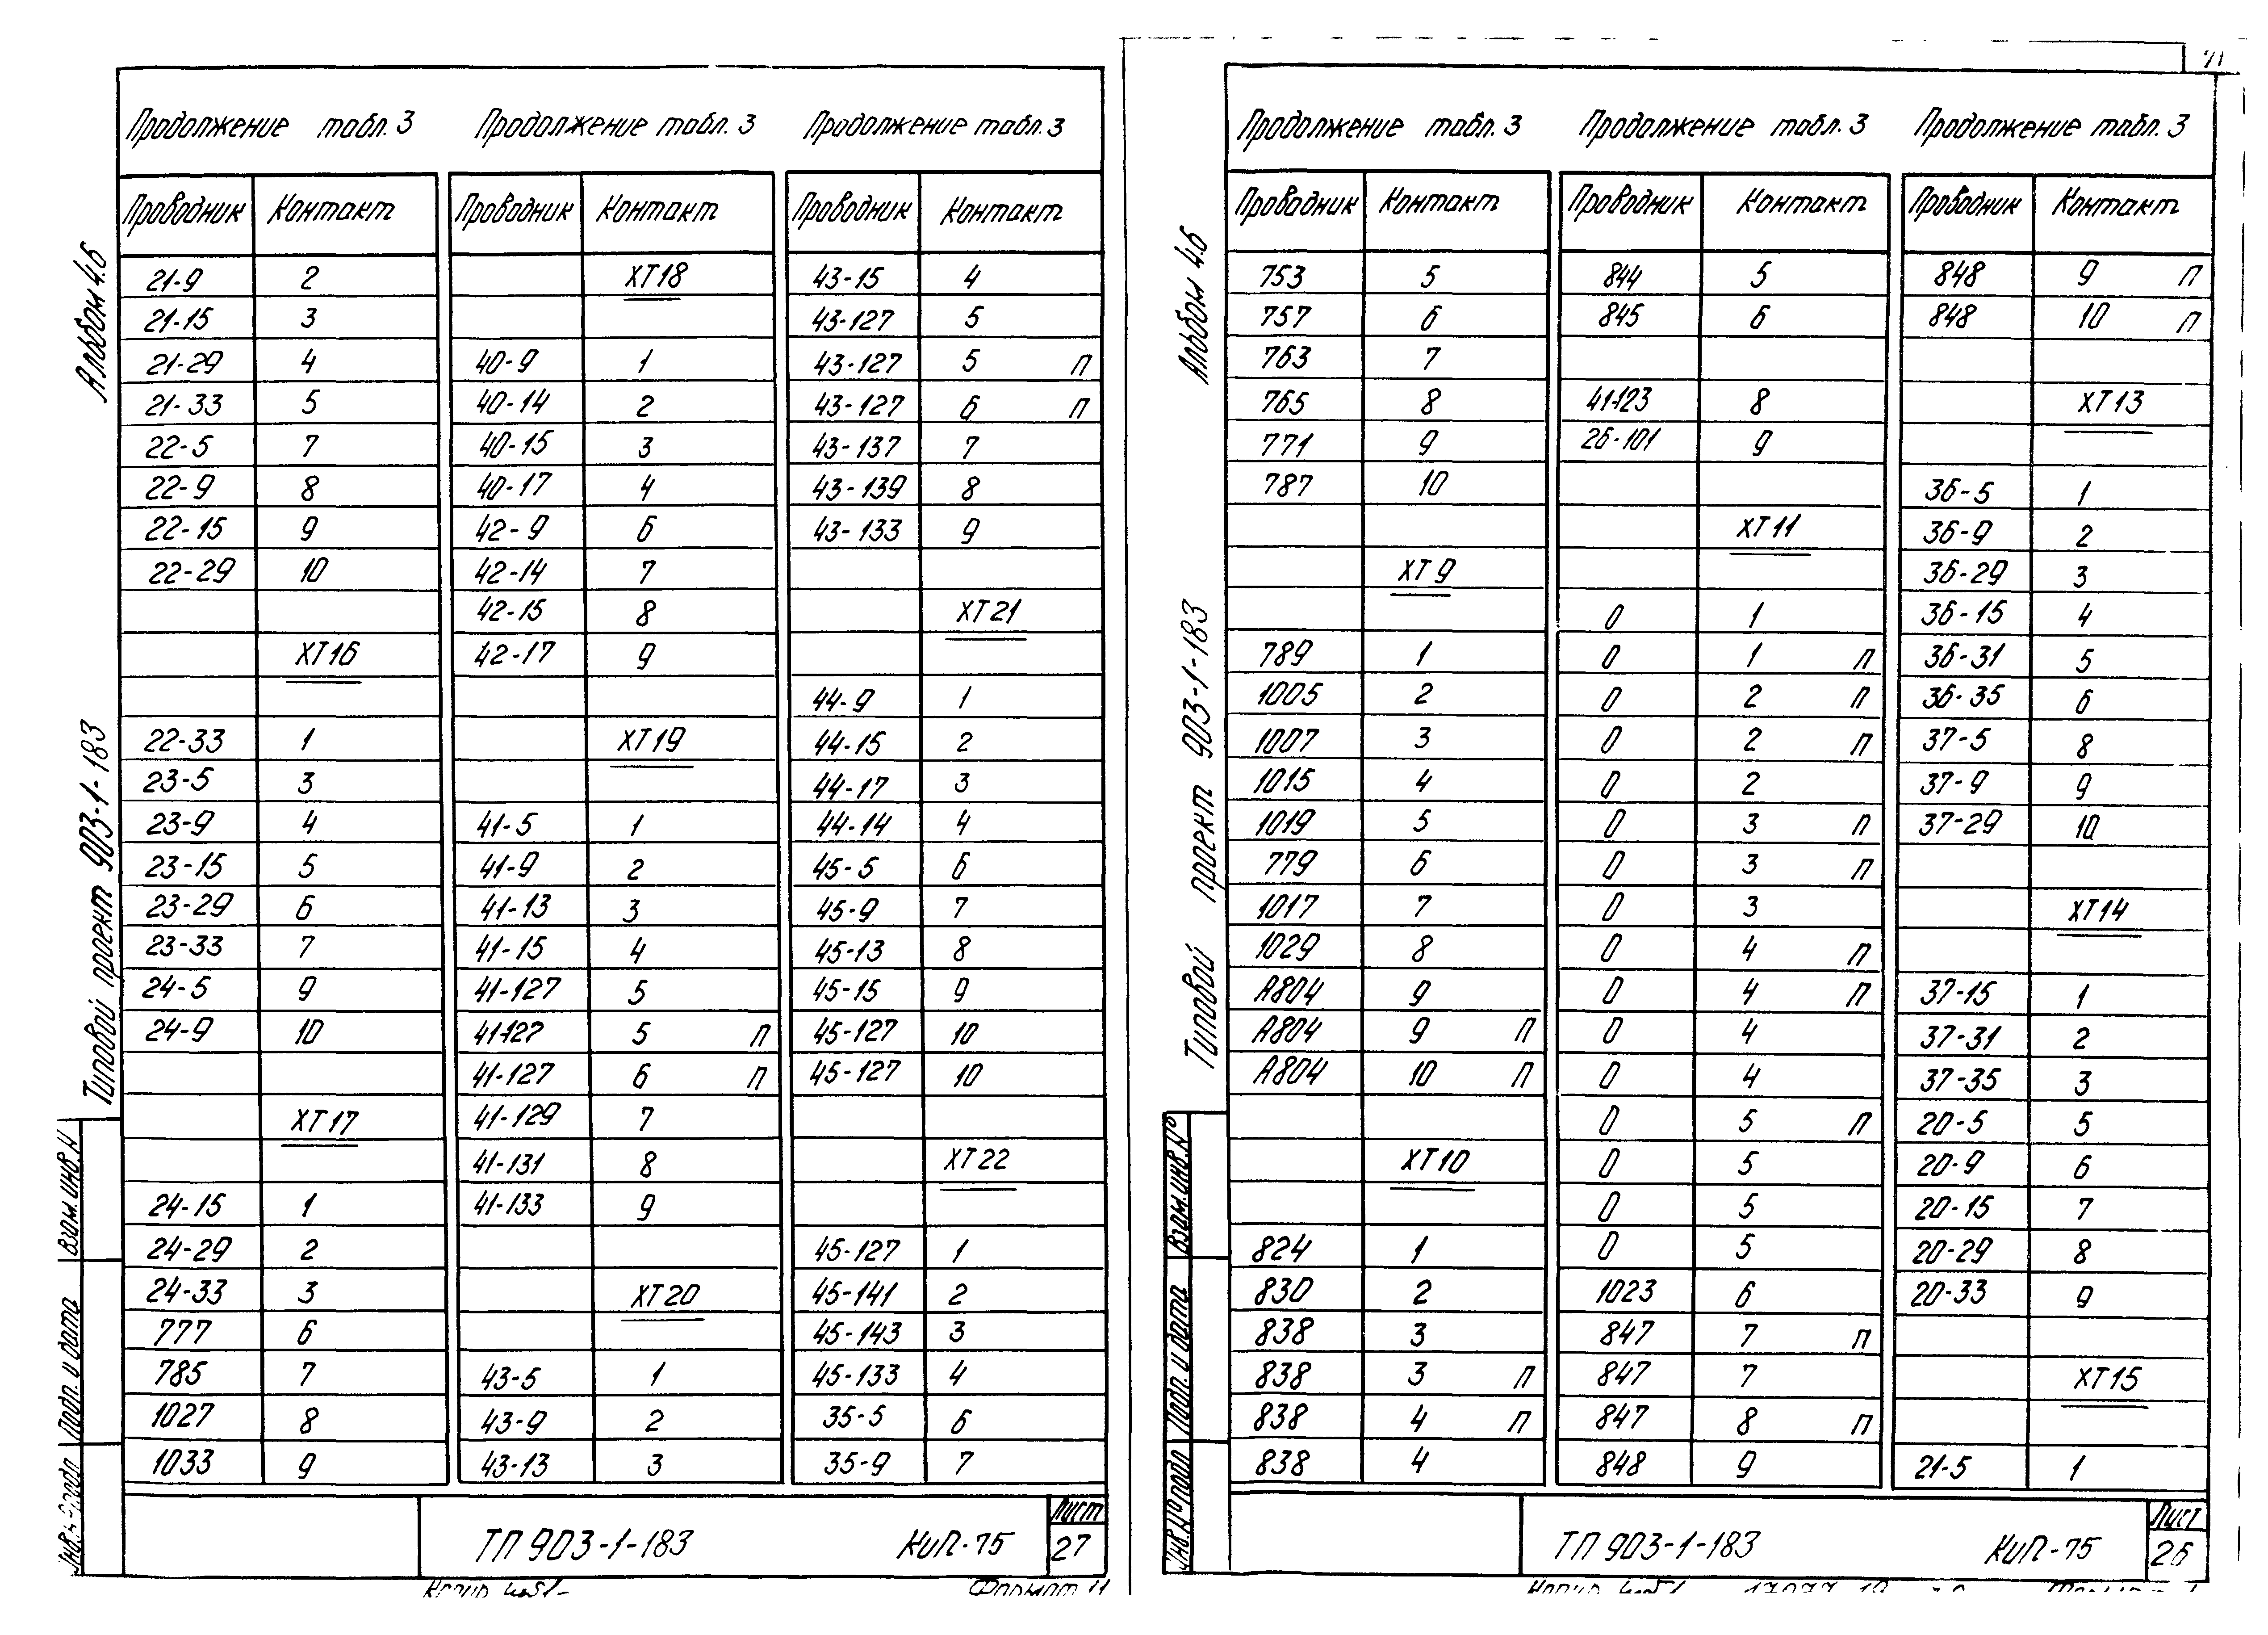 Альбом 4.6
Типовой проект 903-1-183
Взам. инв. N
Подп. и дата
Продолжение табл. 3
Проводник Контакт
21-9 2
21-15 3
21-29 4
21-33 5
22-5 7
22-9 8
22-15 9
22-29 10
ХТ16
22-33 1
23-5 3
23-9 4
23-15 5
23-29 6
23-33 7
24-5 9
24-9 10
ХТ17
24-15 1
24-29 2
24-33 3
777 6
785 7
1027 8
1033 9
Продолжение табл. 3
Проводник Контакт
ХТ18
40-9 1
40-14 2
40-15 3
40-17 4
42-9 6
42-14 7
42-15 8
42-17 9
ХТ19
41-5 1
41-9 2
41-13 3
41-15 4
41-127 5
41-127 5 П
41-127 6 П
41-129 7
41-131 8
41-133 9
ХТ20
43-5 1
43-9 2
43-13 3
Продолжение табл. 3
Проводник Контакт
43-15 4
43-127 5
43-127 5 П
43-127 6 П
43-137 7
43-139 8
43-133 9
ХТ21
44-9 1
44-15 2
44-17 3
44-14 4
45-5 6
45-9 7
45-13 8
45-15 9
45-127 10
45-127 10
ХТ22
45-127 1
45-141 2
45-143 3
45-133 4
35-5 6
35-9 7
ТП 903-1-183 КиП-75
Лист
27
Формат 11
Альбом 4.6
Типовой проект 903-1-183
Взам. инв. N°
Подп. и дата
Инв. N° подл
Продолжение табл. 3
Проводник Контакт
753 5
757 6
763 7
765 8
771 9
787 10
ХТ9
789 1
1005 2
1007 3
1015 4
1019 5
779 6
1017 7
1029 8
А804 9
А804 9 П
А804 10 П
ХТ10
824 1
830 2
838 3
838 3 П
838 4 П
838 4
Продолжение табл. 3
Проводник Контакт
844 5
845 6
41-123 8
26-101 9
ХТ11
0 1
0 1 П
0 2 П
0 2 П
0 2
0 3 П
0 3 П
0 3
0 4 П
0 4 П
0 4
0 4
0 5 П
0 5
0 5
0 5
1023 6
847 7 П
847 7
847 8 П
848 9
Продолжение табл. 3
Проводник Контакт
848 9 П
848 10 П
ХТ13
36-5 1
36-9 2
36-29 3
36-15 4
36-31 5
36-35 6
37-5 8
37-9 9
37-29 10
ХТ14
37-15 1
37-31 2
37-35 3
20-5 5
20-9 6
20-15 7
20-29 8
20-33 9
ХТ15
21-5 1
ТП 903-1-183 КиП-75
Лист
26